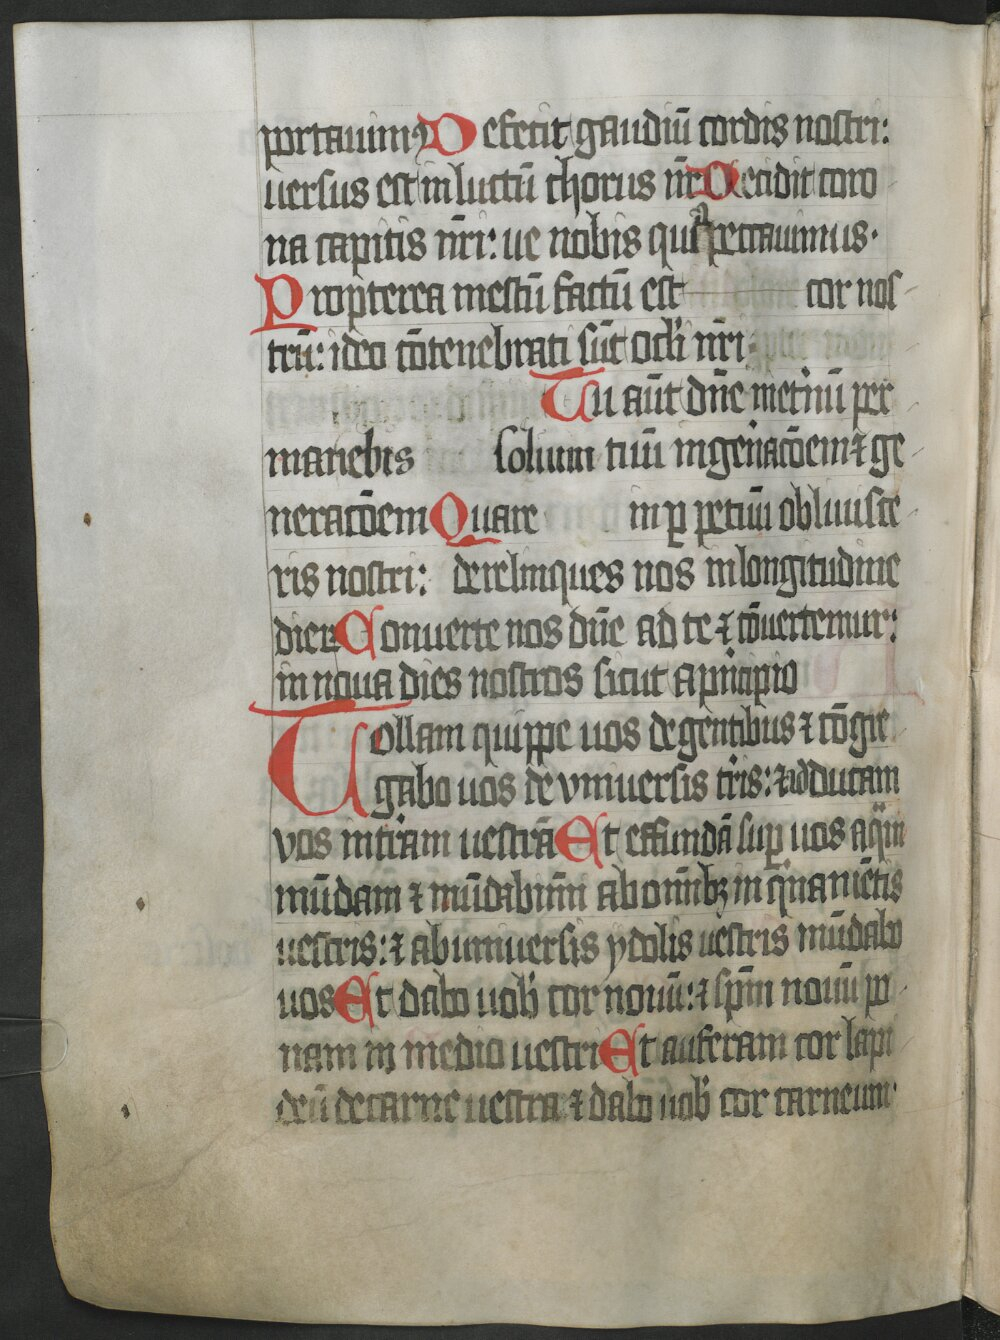 portauimꝰ Defecit gaudiū cordis nostri:
uersus est in luctū chorus nr̄ Decidit coro
na capitis nr̄i: ue nobis quia peccauimus.
Propterea mestū factū est cor nos
trū: ideo ɔ̄tenebrati sūt oclī nr̄i
Tu aūt dn̄e in et̄nū per
manebis solium tuū in gen̄acōem ⁊ ge
neracōem Quare in ꝑpetuū obliuisce
ris nostri: derelinques nos in longitudine
dieꝝ Conuerte nos dn̄e ad te ⁊ ɔ̄uertemur:
innoua dies nostros sicut a pͥncipio
Tollam quippe uos de gentibus ⁊ ɔ̄gre
gabo uos de vniuersis tr̄is: ⁊ adducam
vos in tr̄am uestrā Et effundā suꝑ uos aqͣm
mūdam ⁊ mūdabimī ab om̄ibꝫ inqͥnamētis
uestris: ⁊ ab uniuersis ydolis uestris mūdabo
uos Et dabo uob̄ cor nouū: ⁊ sp̄m nouū po
nam in medio uestri Et auferam cor lapi
deū de carne uestra ⁊ dabo uob̄ cor carneum.